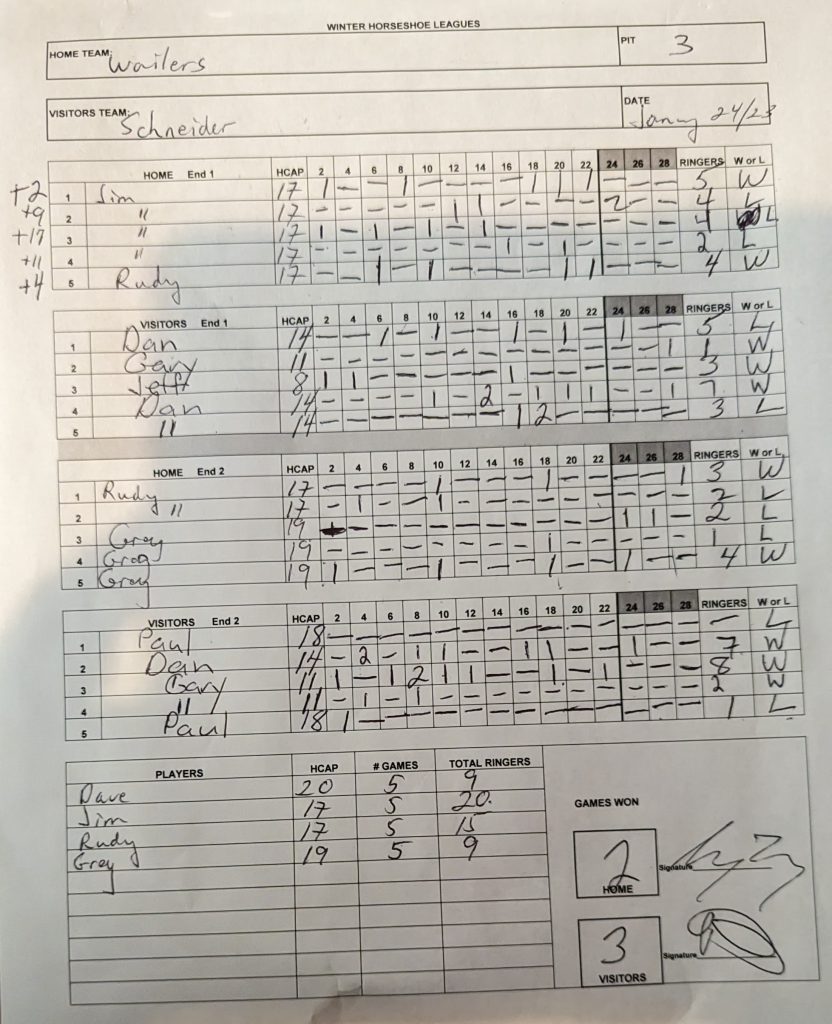 WINTER HORSESHOE LEAGUES
HOME TEAM: Wailers PIT 3
VISITORS TEAM: Schneider DATE 24/23
HOME End 1 HCAP 2 4 6 8 10 12 14 16 18 20 22 24 26 28 RINGERS W or L
+2 1 Jim 17 1 — — 1 — — — — 1 1 1 — — — 5 W
+9 2 " 17 — — — — — 1 1 — — — — 2 — — 4 L
+17 3 " 17 1 — 1 — 1 — 1 — — — — — — — 4 L
+11 4 " 17 — — — — — — — 1 — 1 — — — — 2 L
+4 5 Rudy 17 — — 1 — 1 — — — — 1 1 — — — 4 W
VISITORS End 1 HCAP 2 4 6 8 10 12 14 16 18 20 22 24 26 28 RINGERS W or L
1 Dan 14 — — 1 — 1 — — 1 — 1 — 1 — — 5 L
2 Gary 11 — — — — — — — — — — — — — 1 1 W
3 Jeff 8 1 1 — — — — — 1 — — — — — — 3 W
4 Dan 14 — — — — 1 — 2 — 1 1 1 — — 1 7 W
5 " 14 — — — — — — — 1 2 — — — — — 3 L
HOME End 2 HCAP 2 4 6 8 10 12 14 16 18 20 22 24 26 28 RINGERS W or L
1 Rudy 17 — — — — 1 — — — 1 — — — — 1 3 W
2 " 17 — 1 — — 1 — — — — — — — — — 2 L
3 Greg 19 — — — — — — — — — — — 1 1 — 2 L
4 Greg 19 — — — — — — — — 1 — — — — — 1 L
5 Greg 19 1 — — — 1 — — — 1 — — 1 — — 4 W
VISITORS End 2 HCAP 2 4 6 8 10 12 14 16 18 20 22 24 26 28 RINGERS W or L
1 Paul 18 — — — — — — — — — — — — — — — L
2 Dan 14 — 2 — 1 1 — — 1 1 — — 1 — — 7 W
3 Gary 11 1 — 1 2 1 1 — — 1 — 1 — — — 8 W
4 " 11 — 1 — 1 — — — — — — — — — — 2 W
5 Paul 18 1 — — — — — — — — — — — — — 1 L
PLAYERS HCAP # GAMES TOTAL RINGERS
Dave 20 5 9
Jim 17 5 20.
Rudy 17 5 15
Greg 19 5 9
GAMES WON
2 Signature
HOME
3 Signature
VISITORS